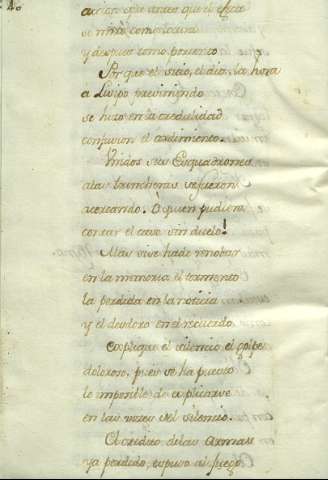 antes que el efeto
se mirò como locura
y despues como portento
Porque el sitio, el dia, la hora
a Luspo previniendo
se hizo en la credulidad
confusion el ardimiento.
Unidos sus Esquadrones
a las trincheras se fueron
acercando. O quien pudiera
contar el caso sin duelo!
Mas si se ha de renobar
en la memoria el tormento
la perdida en la noticia
y el desdoro en el recuerdo
Explique el silencio el golpe
doloroso, pues se ha puesto
lo imposible de explicarse
en las vozes del silencio.
El credito de las armas
ya perdido, espuso al fuego